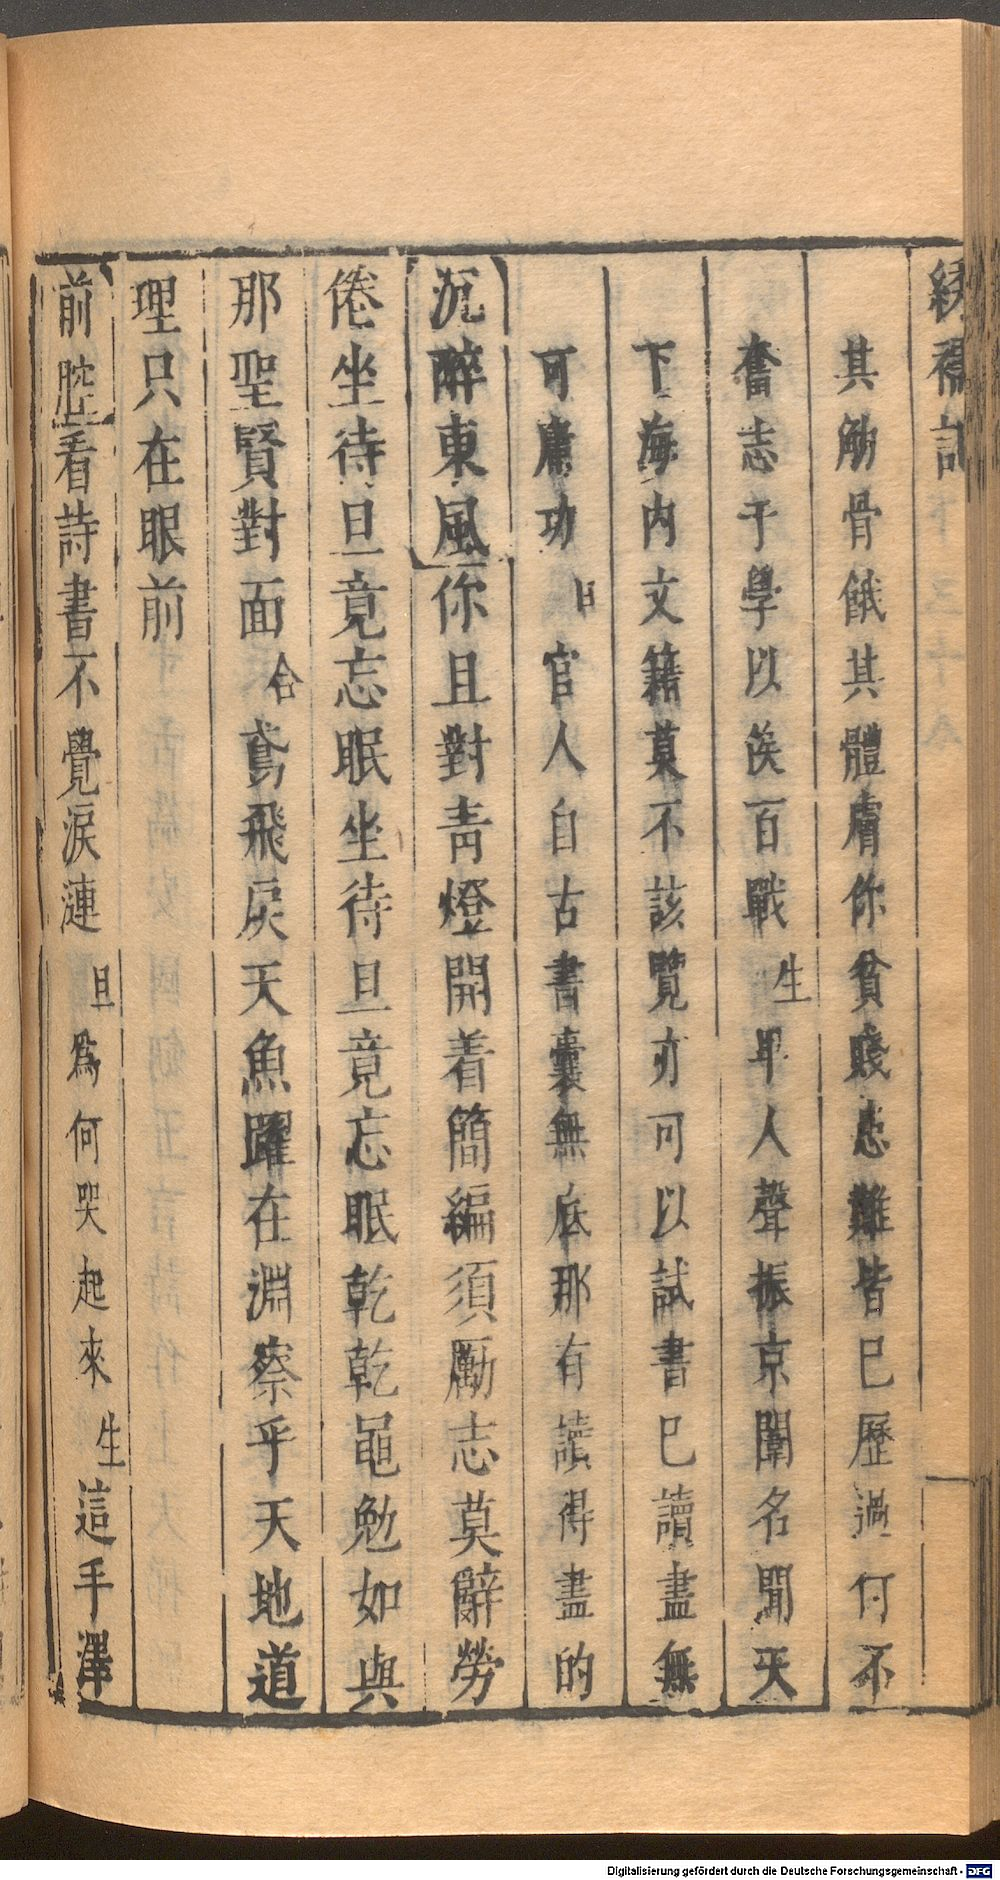 繡襦記
其觔骨餓其體膚你貧賤患難皆已歷過何不
奮志于學以俟百戰生早人聲振京闈名聞天
下海內文籍莫不該覽亦可以試書已讀盡無
可庸功旦官人自古書囊無底那有讀得盡的
沉醉東風你且對靑燈開着簡編須勵志莫辭勞
倦坐待旦竟忘眠坐待旦竟忘眠乾乾黽勉如與
那聖賢對面合鳶飛戾天魚躍在淵察乎天地道
理只在眼前
前腔看詩書不覺淚漣旦爲何哭起來生這手澤
Digitalisierung gefördert durch die Deutsche Forschungsgemeinschaft - DFG